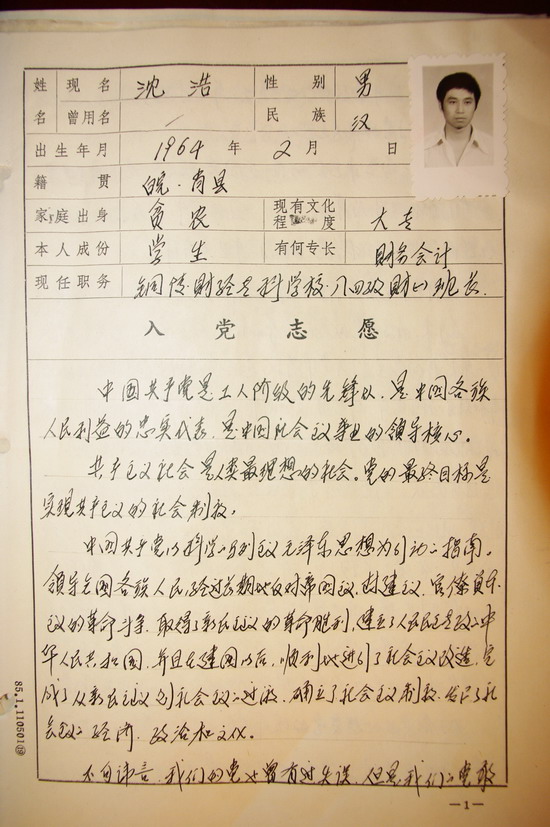 姓 现名 沈浩 性别 男
名 曾用名 / 民族 汉
出生年月 1964 年 2 月 日
籍贯 皖·肖县
家庭出身 贫农 现有文化程度 大专
本人成份 学生 有何专长 财务会计
现任职务 铜陵财经专科学校·八四级财(一)班长
入党志愿
中国共产党是工人阶级的先锋队，是中国各族
人民利益的忠实代表，是中国社会主义事业的领导核心。
共产主义社会是人类最理想的社会。党的最终目标是
实现共产主义的社会制度。
中国共产党以马列主义毛泽东思想为行动的指南。
领导全国各族人民，经过长期地反对帝国主义、封建主义、官僚资本
主义的革命斗争，取得了新民主主义的革命胜利，建立了人民民主专政的中
华人民共和国，并且在建国以后，顺利地进行了社会主义改造，完
成了从新民主主义到社会主义的过渡，确立了社会主义制度，发展了社
会主义的经济、政治和文化。
不用讳言，我们的党也曾有过失误，但是我们的党敢
85.1.110501⑲
—1—